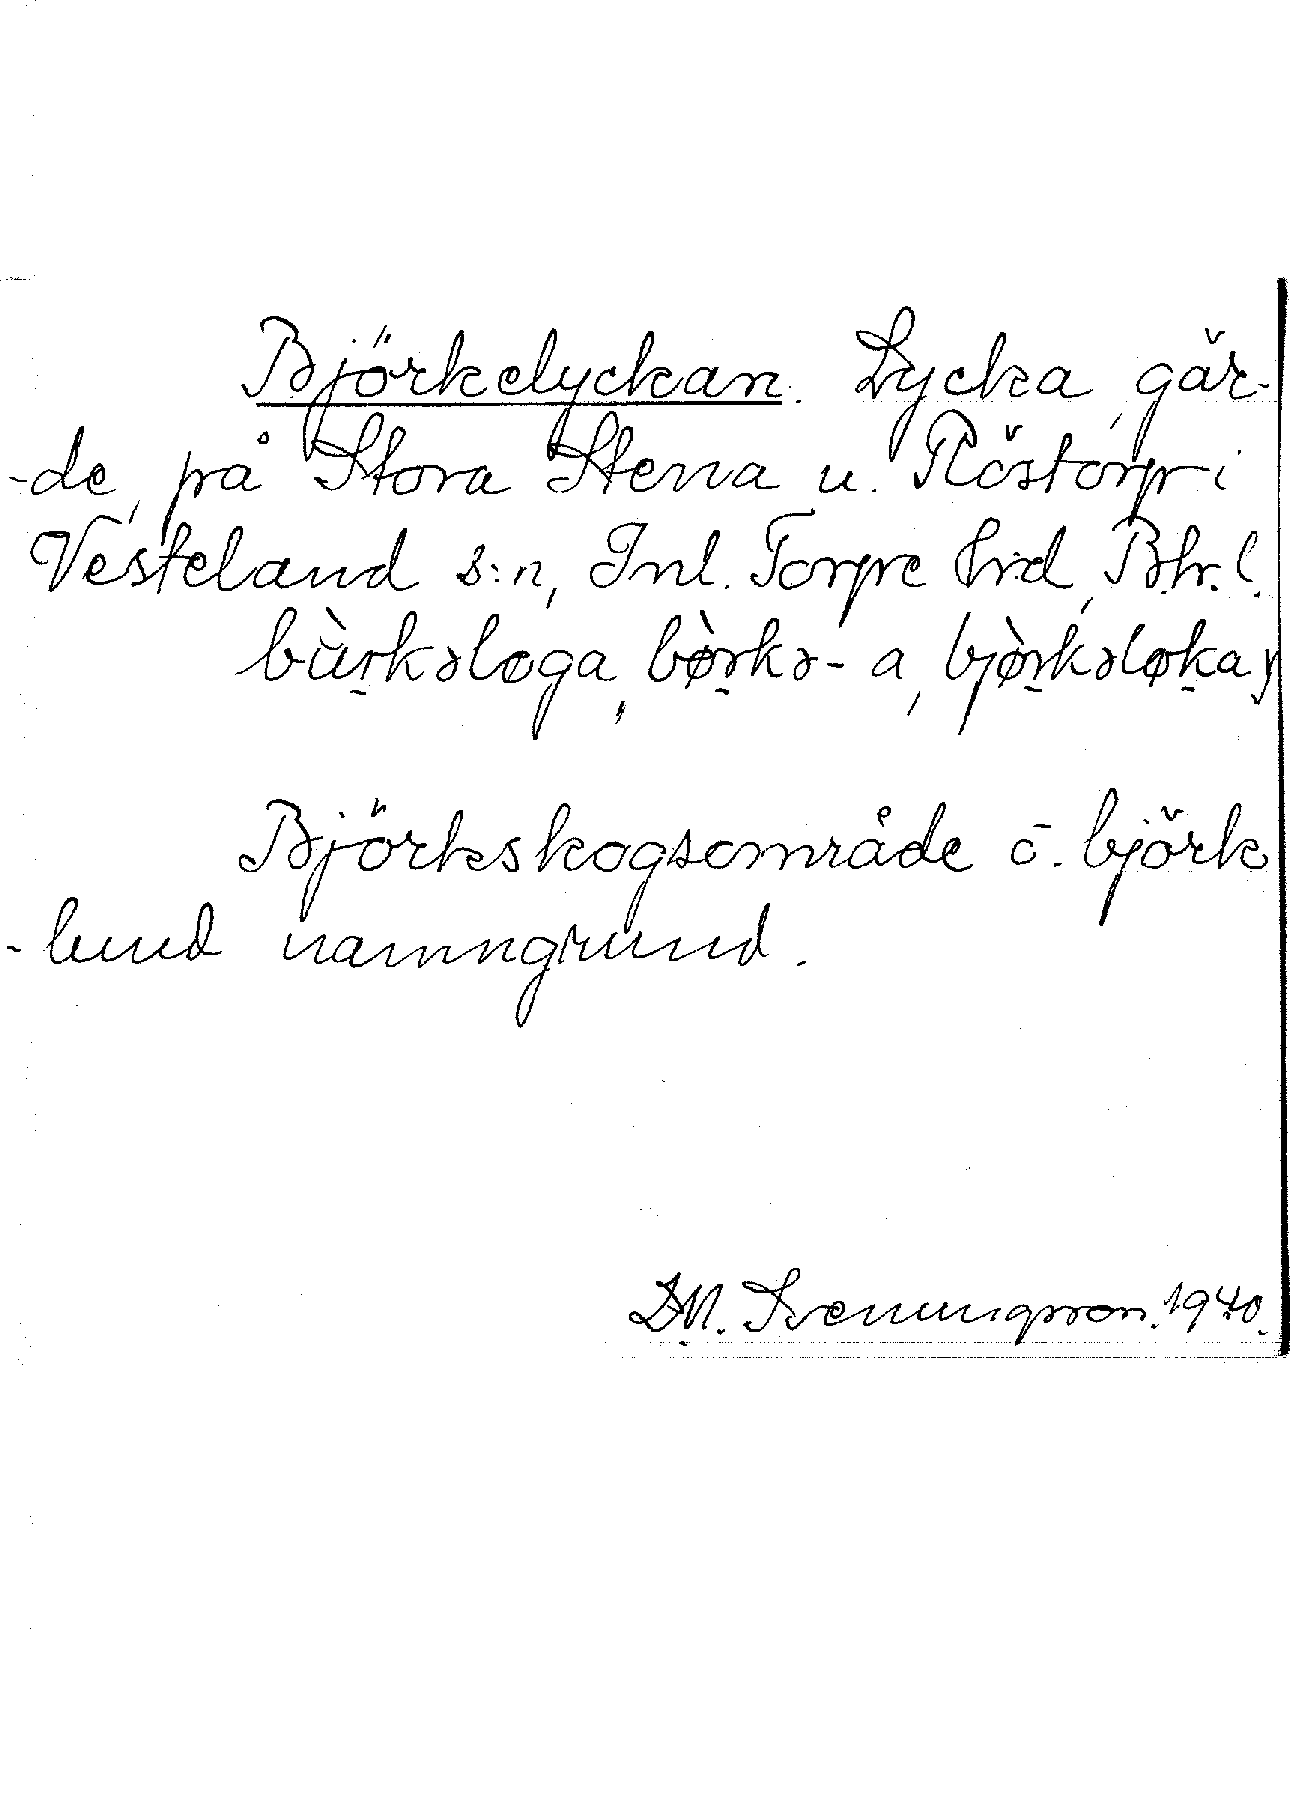 Björkelyckan. Lycka, går-
-de, på Stora Stena u. Röstorp i
Vesteland s:n, Inl. Torpe hrd, Bhr. l.
bùrkəloga, bø̀rkə- a, bjø̀rkəløka }
Björkskogsområde o. björk
-lund namngrund.
D.N. Sveningsson. 1940.